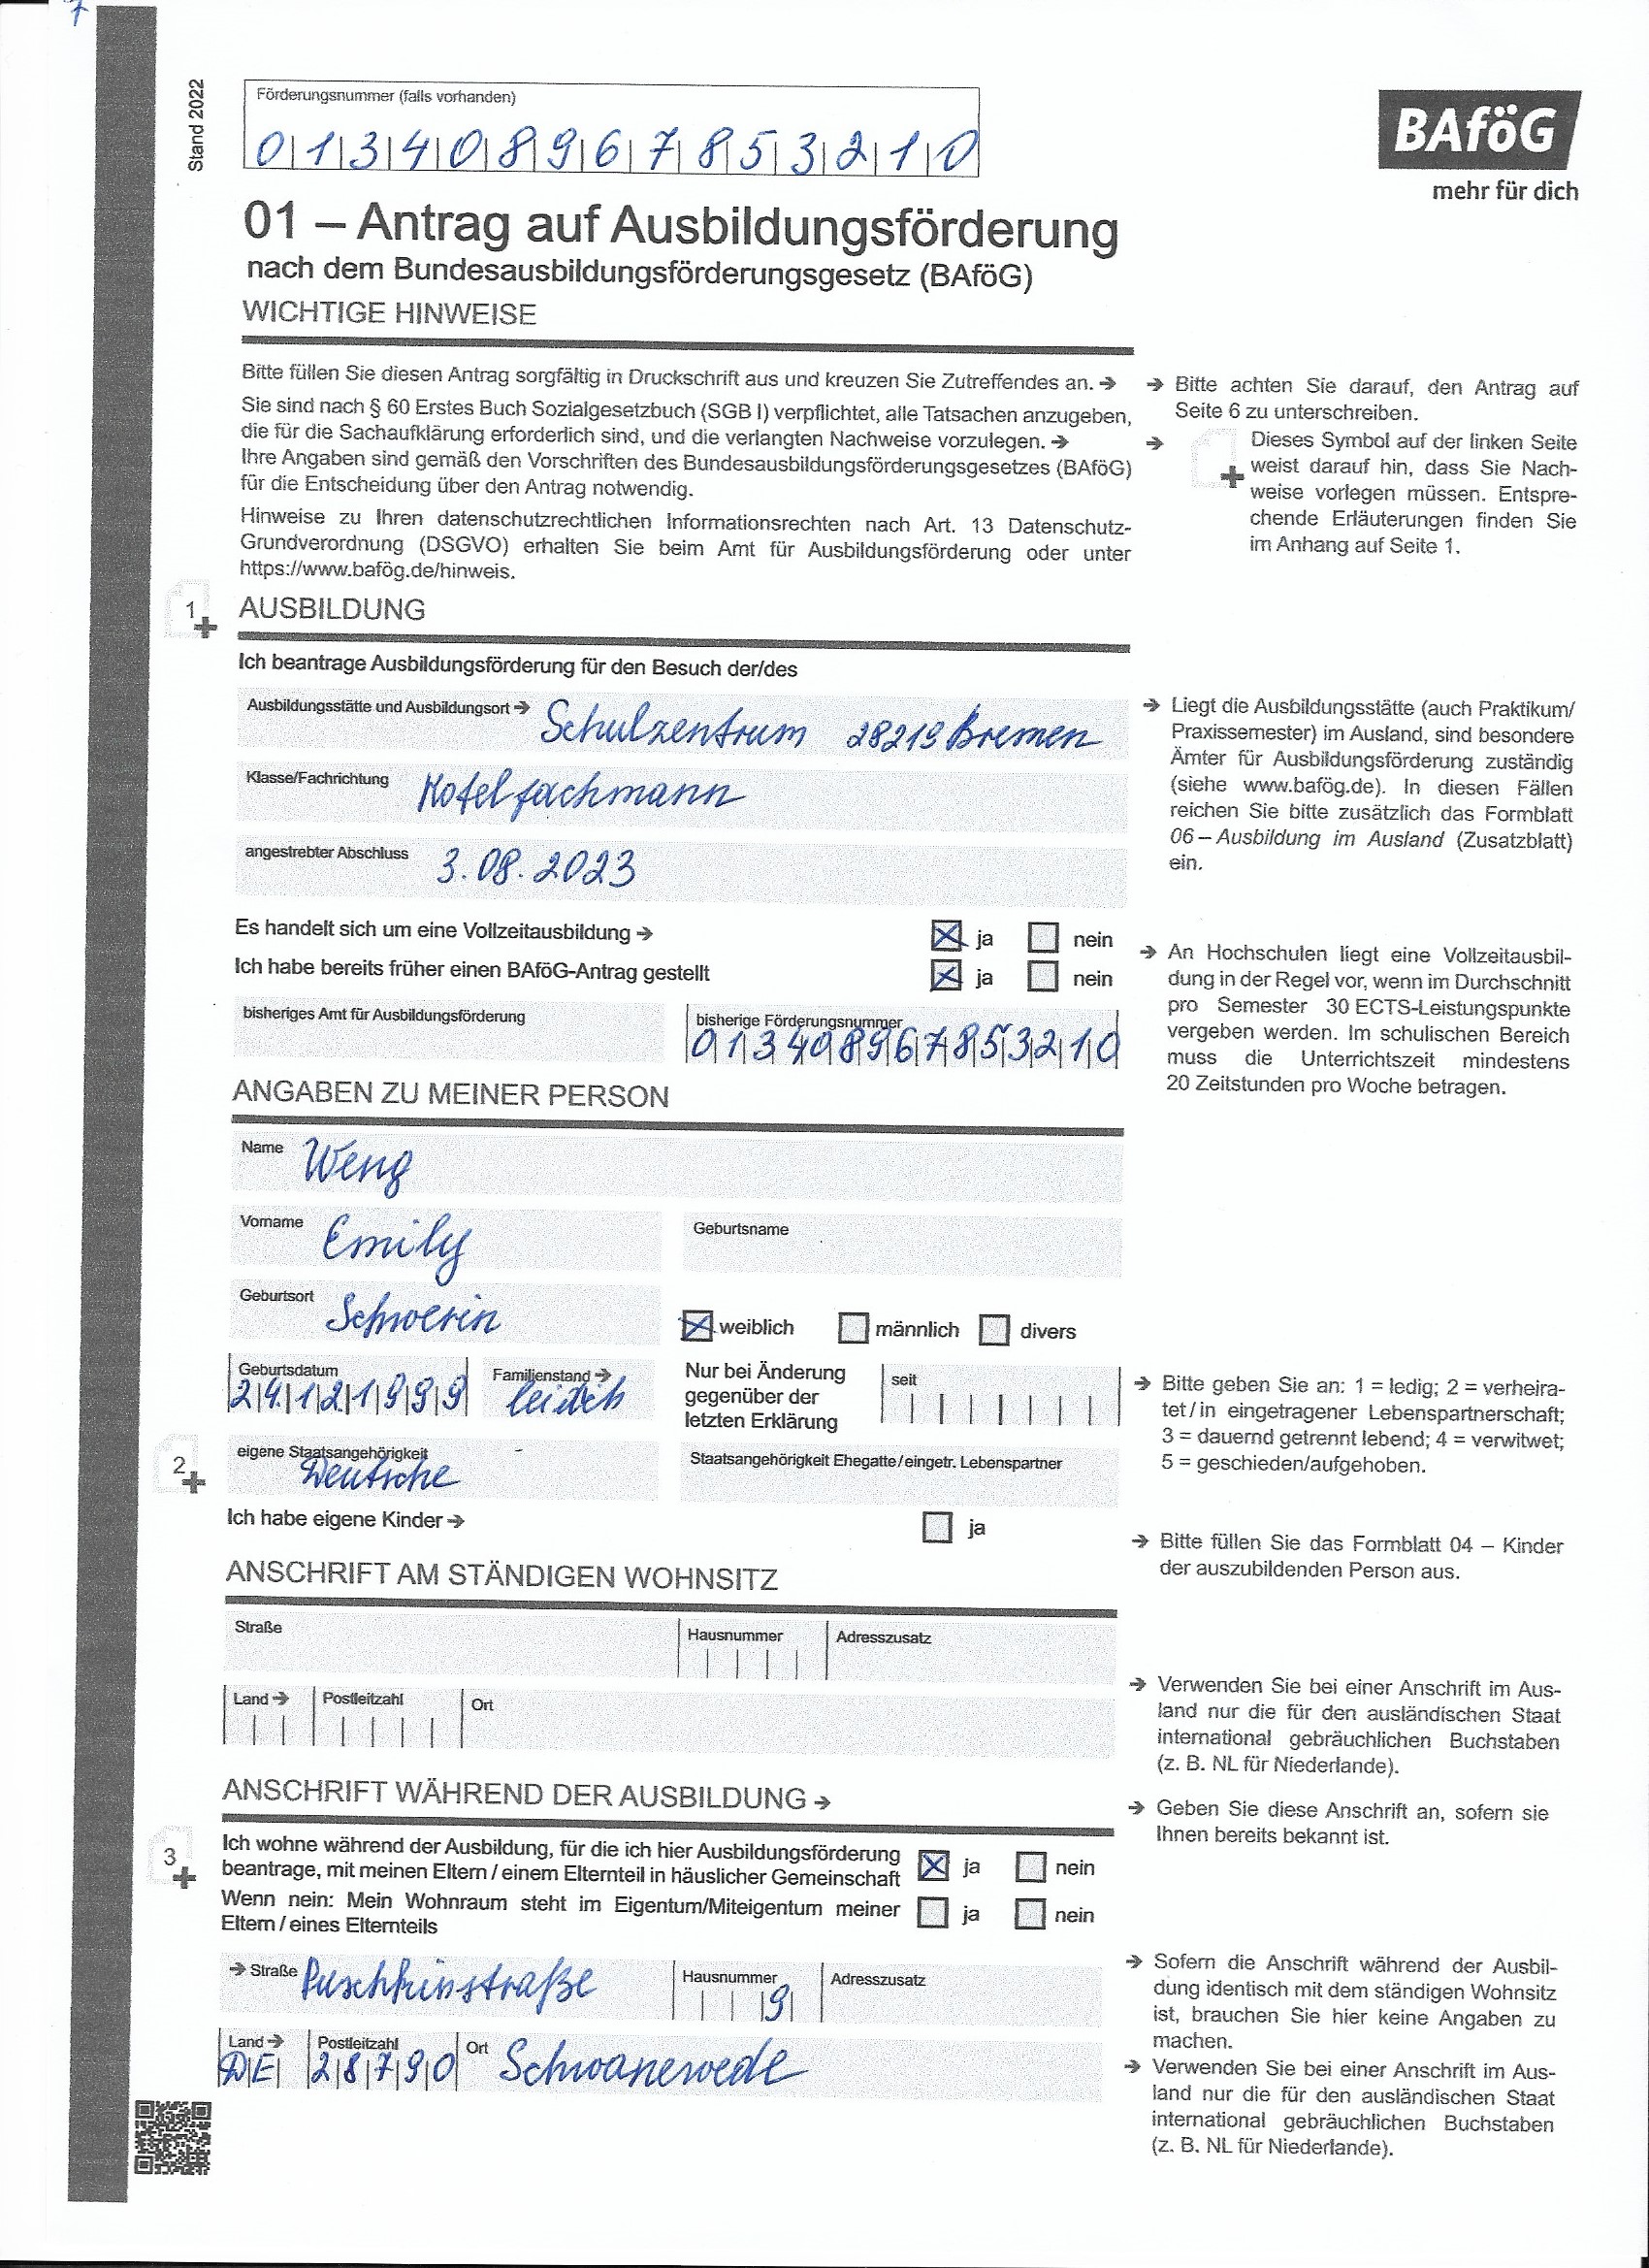 7
Stand 2022
Förderungsnummer (falls vorhanden)
013408967853210
BAföG
mehr für dich
01 – Antrag auf Ausbildungsförderung
nach dem Bundesausbildungsförderungsgesetz (BAföG)
WICHTIGE HINWEISE
Bitte füllen Sie diesen Antrag sorgfältig in Druckschrift aus und kreuzen Sie Zutreffendes an. →
Sie sind nach § 60 Erstes Buch Sozialgesetzbuch (SGB I) verpflichtet, alle Tatsachen anzugeben,
die für die Sachaufklärung erforderlich sind, und die verlangten Nachweise vorzulegen. →
Ihre Angaben sind gemäß den Vorschriften des Bundesausbildungsförderungsgesetzes (BAföG)
für die Entscheidung über den Antrag notwendig.
Hinweise zu Ihren datenschutzrechtlichen Informationsrechten nach Art. 13 Datenschutz-
Grundverordnung (DSGVO) erhalten Sie beim Amt für Ausbildungsförderung oder unter
https://www.bafög.de/hinweis.
→ Bitte achten Sie darauf, den Antrag auf
Seite 6 zu unterschreiben.
→ Dieses Symbol auf der linken Seite
weist darauf hin, dass Sie Nach-
weise vorlegen müssen. Entspre-
chende Erläuterungen finden Sie
im Anhang auf Seite 1.
1 AUSBILDUNG
Ich beantrage Ausbildungsförderung für den Besuch der/des
Ausbildungsstätte und Ausbildungsort → Schulzentrum 28219 Bremen
Klasse/Fachrichtung Hotelfachmann
angestrebter Abschluss 3.08.2023
→ Liegt die Ausbildungsstätte (auch Praktikum/
Praxissemester) im Ausland, sind besondere
Ämter für Ausbildungsförderung zuständig
(siehe www.bafög.de). In diesen Fällen
reichen Sie bitte zusätzlich das Formblatt
06 – Ausbildung im Ausland (Zusatzblatt)
ein.
Es handelt sich um eine Vollzeitausbildung → ja nein
Ich habe bereits früher einen BAföG-Antrag gestellt ja nein
bisheriges Amt für Ausbildungsförderung
bisherige Förderungsnummer
013408967853210
→ An Hochschulen liegt eine Vollzeitausbil-
dung in der Regel vor, wenn im Durchschnitt
pro Semester 30 ECTS-Leistungspunkte
vergeben werden. Im schulischen Bereich
muss die Unterrichtszeit mindestens
20 Zeitstunden pro Woche betragen.
ANGABEN ZU MEINER PERSON
Name Weng
Vorname Emily
Geburtsname
Geburtsort Schwerin
weiblich männlich divers
Geburtsdatum
24.12.1999
Familienstand →
Nur bei Änderung
gegenüber der
letzten Erklärung
seit
→ Bitte geben Sie an: 1 = ledig; 2 = verheira-
tet / in eingetragener Lebenspartnerschaft;
3 = dauernd getrennt lebend; 4 = verwitwet;
5 = geschieden/aufgehoben.
2 eigene Staatsangehörigkeit
Deutsche
Staatsangehörigkeit Ehegatte / eingetr. Lebenspartner
Ich habe eigene Kinder → ja
→ Bitte füllen Sie das Formblatt 04 – Kinder
der auszubildenden Person aus.
ANSCHRIFT AM STÄNDIGEN WOHNSITZ
Straße Hausnummer Adresszusatz
Land → Postleitzahl Ort
→ Verwenden Sie bei einer Anschrift im Aus-
land nur die für den ausländischen Staat
international gebräuchlichen Buchstaben
(z. B. NL für Niederlande).
ANSCHRIFT WÄHREND DER AUSBILDUNG →
→ Geben Sie diese Anschrift an, sofern sie
Ihnen bereits bekannt ist.
3 Ich wohne während der Ausbildung, für die ich hier Ausbildungsförderung
beantrage, mit meinen Eltern / einem Elternteil in häuslicher Gemeinschaft ja nein
Wenn nein: Mein Wohnraum steht im Eigentum/Miteigentum meiner
Eltern / eines Elternteils ja nein
→ Straße Puschkinstraße Hausnummer 9 Adresszusatz
Land → DE Postleitzahl 28790 Ort Schwanewede
→ Sofern die Anschrift während der Ausbil-
dung identisch mit dem ständigen Wohnsitz
ist, brauchen Sie hier keine Angaben zu
machen.
→ Verwenden Sie bei einer Anschrift im Aus-
land nur die für den ausländischen Staat
international gebräuchlichen Buchstaben
(z. B. NL für Niederlande).